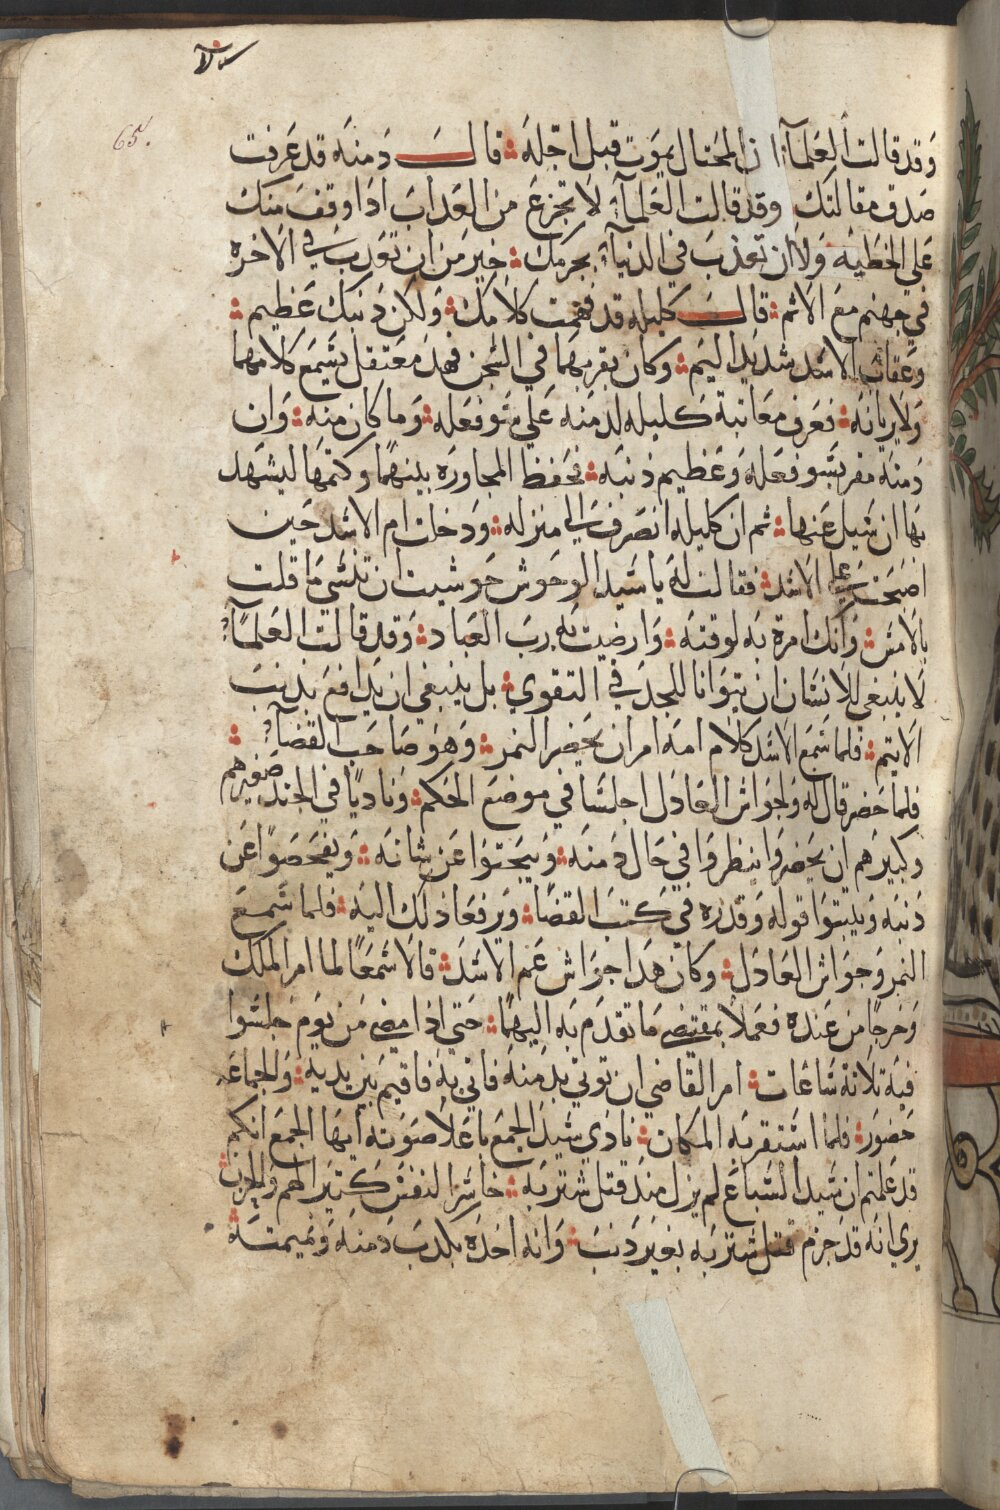 65.
وقد قالت العلمآء ان المحتال يموت قبل اجله قالــــت دمنه قد عرفت
صدق مقالتك وقد قالت العلمآء لا تجزع من العداب ادا وقفت منك
على الخطيه ولا ان تعذب في الدنيآء بجرمك خير من ان تعدب في الاخره
في جهنم مع الاثم قالــــت كليله قد فهمت كلامك ولكن دنبك عظيم
وعقاب الاسد شديد اليم وكان بقربهما في السجن فهد معتقل يسمع كلامهما
ولا يريانه فعرف معاتبة كليله لدمنه علي سو فعله وما كان منه وان
دمنه مقر بسو فعله وعظيم ذنبه فحفظ المجاوره بينهما وكتمها ليشهد
بها ان سيل عنها ثم ان كليله انصرف الى منزله ودخلت ام الاسد حين
اصبحت على الاسد فقالت له يا سيد الوحوش حوشيت ان تنسى ما قلت
بالامس وانك امرة به لوقته وارضيت به رب العباد وقد قالت العلمآء
لا ينبغي للانسان ان يتوانا للجد في التقوي بل ينبغي ان يدافع بدنب
الايتم فلما سمع الاسد كلام امه امر ان يحضر النمر وهو صاحب القضآء
فلما حضر قال له ولجواش العادل اجلسا في موضع الحكم وناديا في الجند صغيرهم
وكبيرهم ان يحضروا وينظروا في حال دمنه ويبحتوا عن شانه ويفحصوا عن
دنبه ويثبتوا قوله وقدره في كتب القضا ويرفعا ذلك اليه فلما سمع
النمر وجواش العادل وكان هدا جواش عم الاسد قالا سمعا لما امر الملك
وخرجا من عنده فعملا بمقتضى ما تقدم به اليهما حتي اذا مضى من يوم جلسوا
فيه ثلاثة ساعات امر القاضي ان توتي بدمنه فاتي به فاقيم بين يديه والجماعه
حضور فلما استقر به المكان نادي سيد الجمع باعلا صوته ايها الجمع انكم
قد علمتم ان سيد السباع لم يزل مند قتل شتربه خاثر النفس كتير الهم والحزن
يري انه قد جزم قتل شتربه بغير دنب وانه اخده بكدب دمنه ونميمته